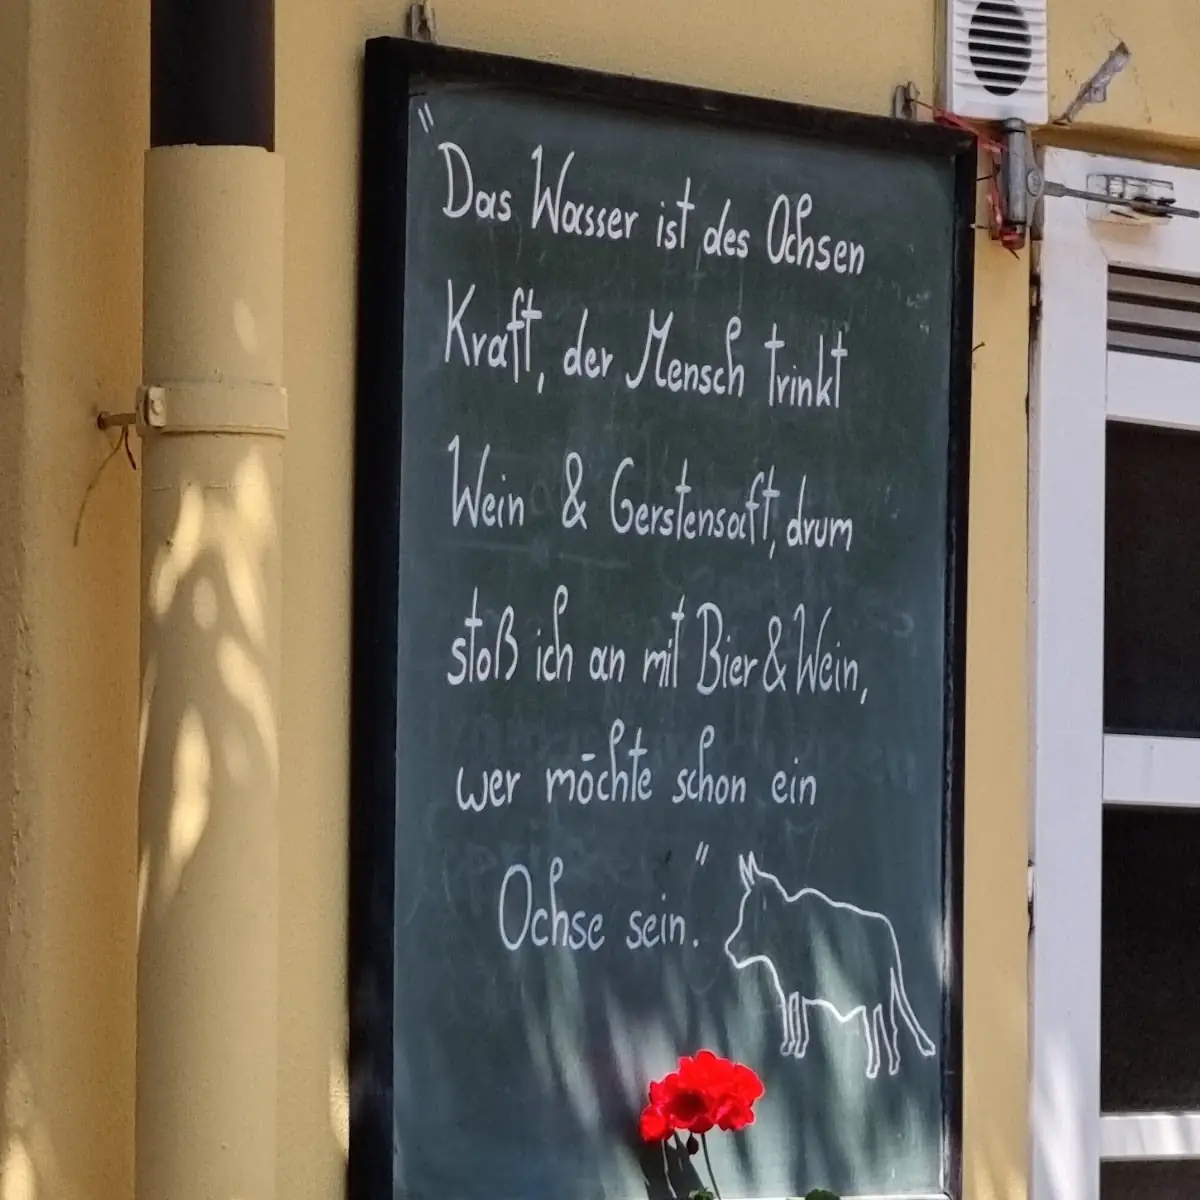 "Das Wasser ist des Ochsen
Kraft, der Mensch trinkt
Wein & Gerstensaft, drum
stoß ich an mit Bier & Wein,
wer möchte schon ein
Ochse sein."